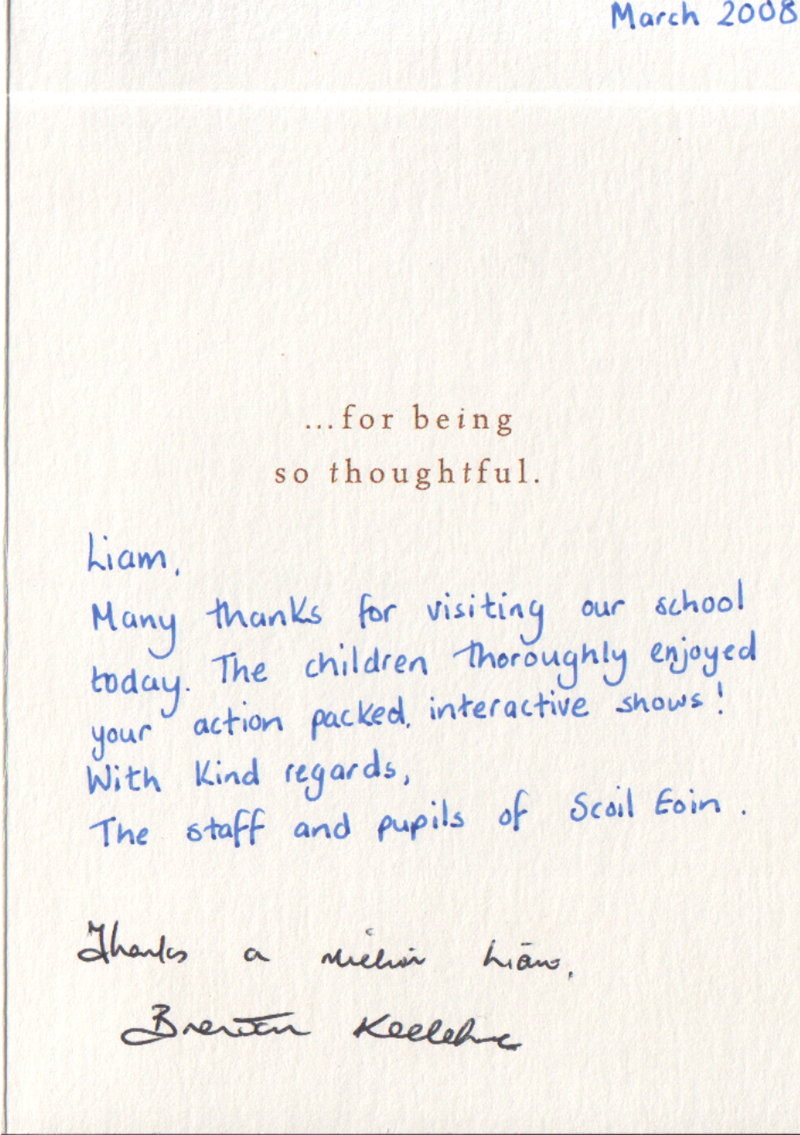 March 2008
...for being
so thoughtful.
Liam,
Many thanks for visiting our school
today. The children thoroughly enjoyed
your action packed, interactive shows!
With Kind regards,
The staff and pupils of Scoil Eoin.
Thanks a million Liam,